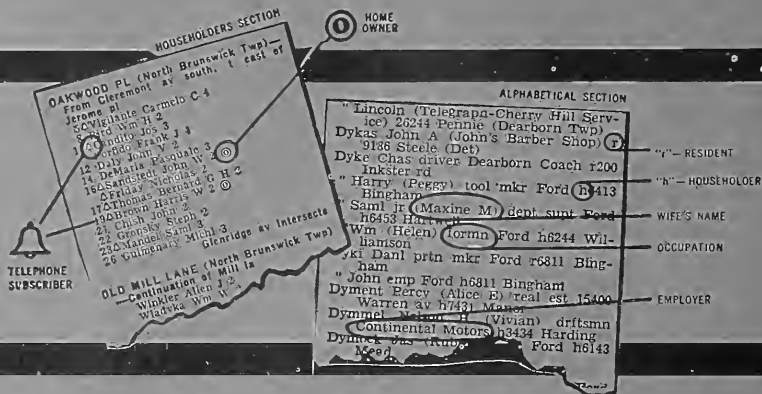 HOUSEHOLDERS SECTION
HOME
OWNER
OAKWOOD PL (North Brunswick Twp)—
From Cleremont av south, 1 east of
Jerome pl
5△Vigilante Carmelo C 4
Wm H 2
Jos 3
Frank J 4
12 Daly John V 2
14 DeMaria Pasquale 3
16△Sandstedt John W 2
△Friday Nicholas 2
17△Thomas Bernard G H 2
19△Brown Harris W 2
21 Chish John 2
22 Gronsky Steph 2
23△Mandel Saml 3
26 Gulmenary Michl 3
Glenridge av intersects
OLD MILL LANE (North Brunswick Twp)
—Continuation of Mill la
Winkler Allen J 2
Wladyka Wm W
TELEPHONE
SUBSCRIBER
ALPHABETICAL SECTION
" Lincoln (Telegraph-Cherry Hill Serv-
ice) 26244 Pennie (Dearborn Twp)
Dykas John A (John's Barber Shop) r
9186 Steele (Det)
Dyke Chas driver Dearborn Coach r200
Inkster rd
" Harry (Peggy) tool mkr Ford h6413
Bingham
" Saml jr (Maxine M) dept supt Ford
h6453 Hartwell
" Wm (Helen) formn Ford h6244 Wil-
liamson
Danl prtn mkr Ford r6811 Bing-
ham
" John emp Ford h6811 Bingham
Dyment Percy (Alice E) real est 15400
Warren av h7431 Manor
Dymmel Nelson H (Vivian) drftsmn
Continental Motors h3434 Harding
Dymock Jas Ford h6143
Mead
"r"— RESIDENT
"h"— HOUSEHOLDER
WIFE'S NAME
OCCUPATION
EMPLOYER